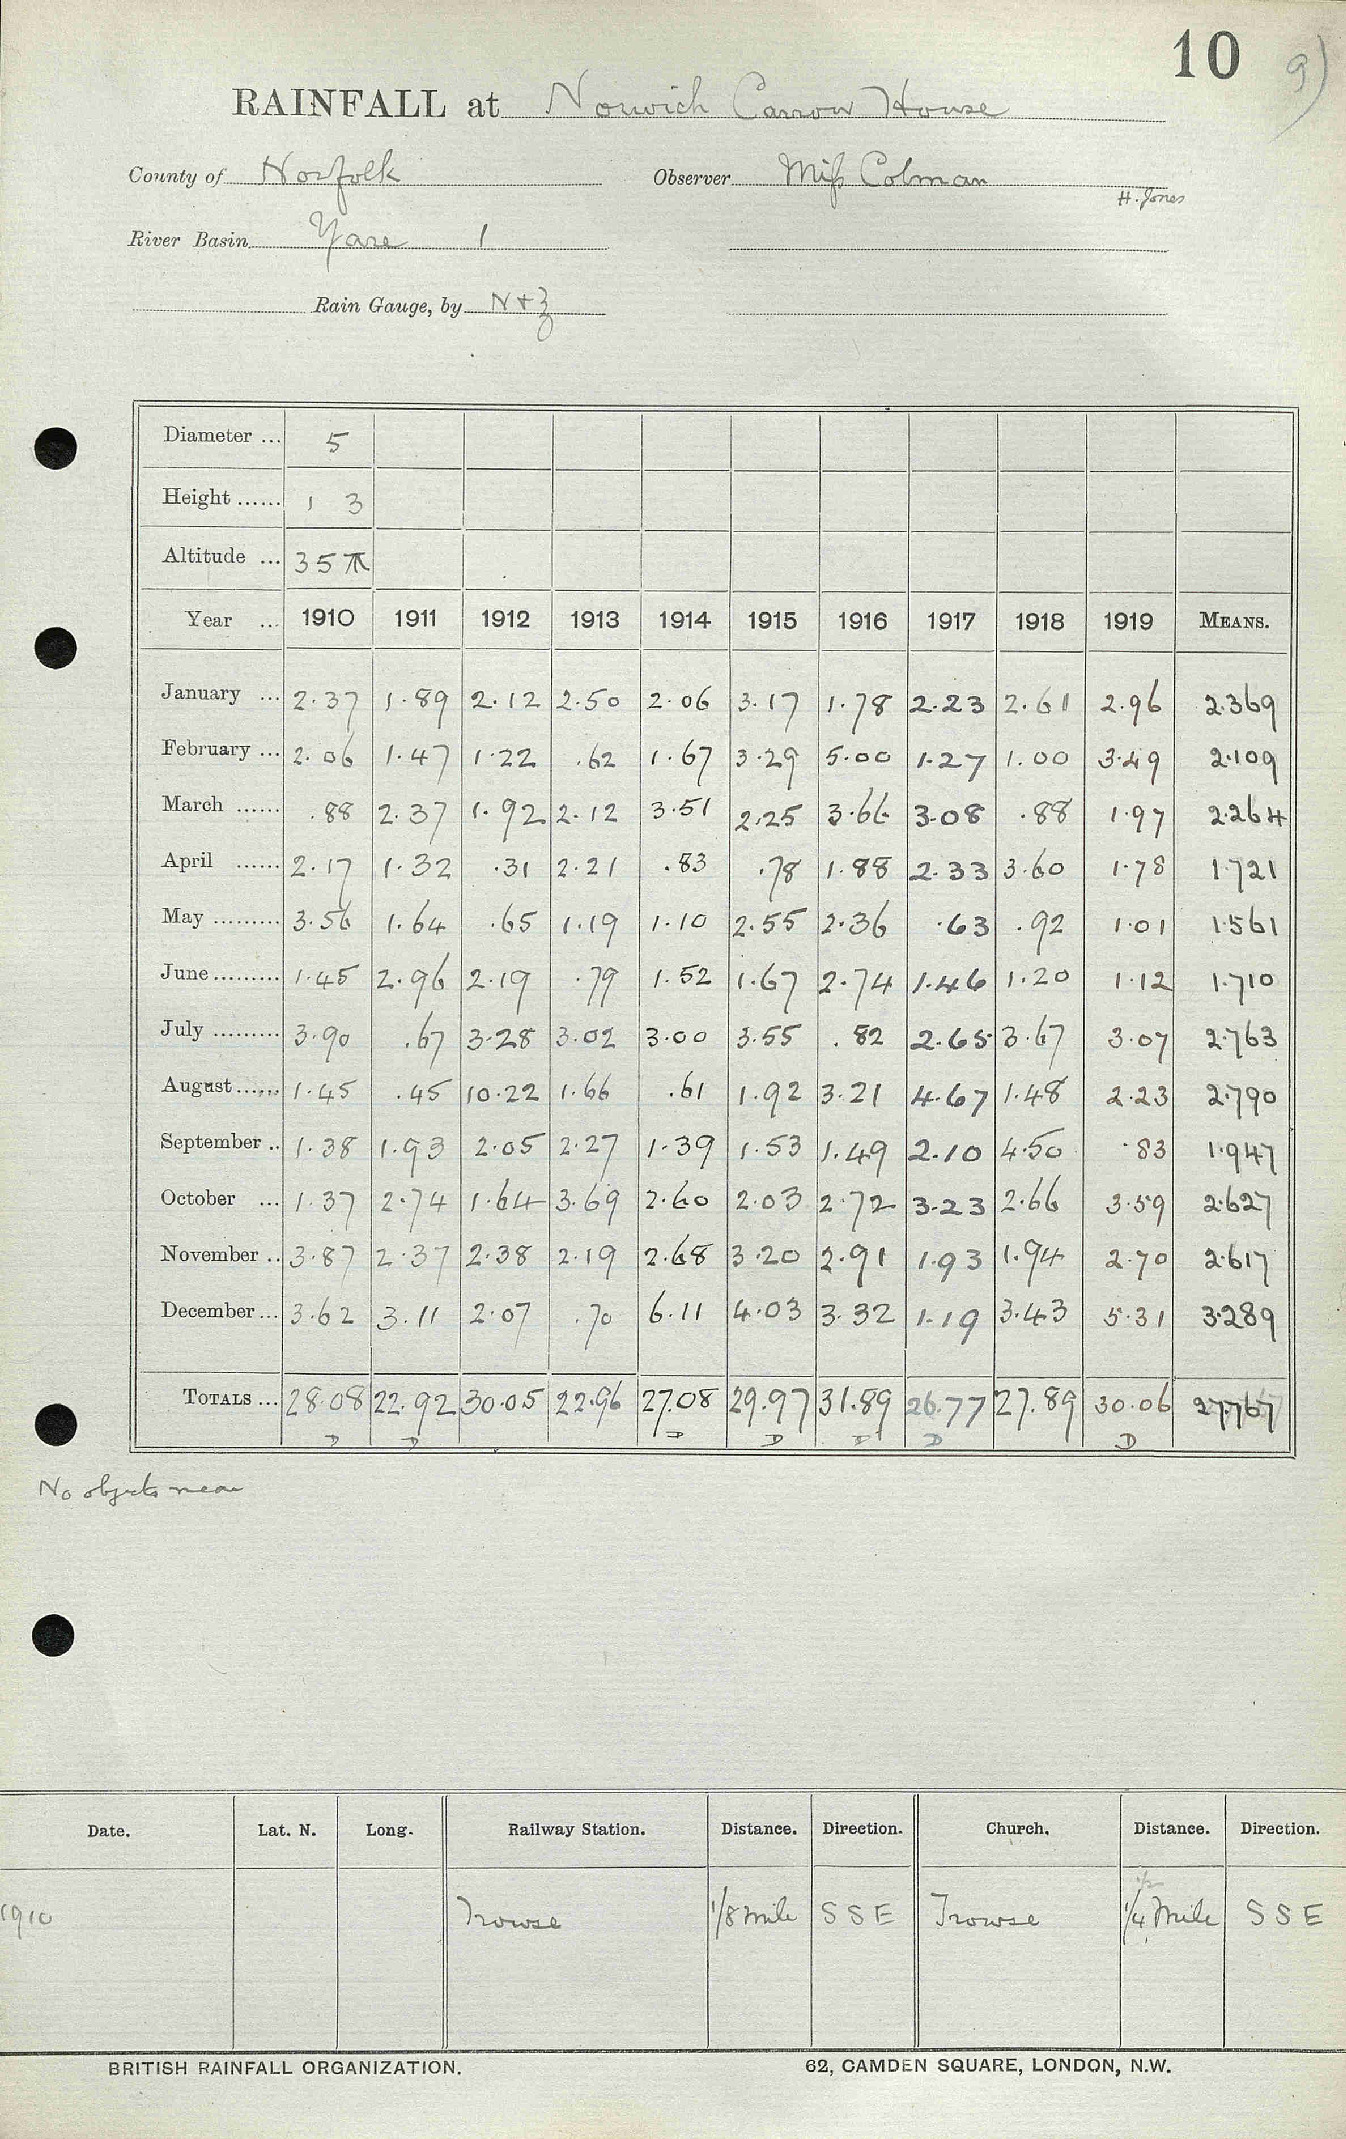 10 9)
RAINFALL at Norwich Carrow House
County of Norfolk Observer Miss Colman
H. Jones
River Basin Yare 1
Rain Gauge, by N+Z
Diameter ... 5
Height ...... 1 3
Altitude ... 35
Year ... 1910 1911 1912 1913 1914 1915 1916 1917 1918 1919 MEANS.
January ... 2.37 1.89 2.12 2.50 2.06 3.17 1.78 2.23 2.61 2.96 2.369
February ... 2.06 1.47 1.22 .62 1.67 3.29 5.00 1.27 1.00 3.49 2.109
March ...... .88 2.37 1.92 2.12 3.51 2.25 3.66 3.08 .88 1.97 2.264
April ...... 2.17 1.32 .31 2.21 .83 .78 1.88 2.33 3.60 1.78 1.721
May ......... 3.56 1.64 .65 1.19 1.10 2.55 2.36 .63 .92 1.01 1.561
June ......... 1.45 2.96 2.19 .79 1.52 1.67 2.74 1.46 1.20 1.12 1.710
July ......... 3.90 .67 3.28 3.02 3.00 3.55 .82 2.65 3.67 3.07 2.763
August ...... 1.45 .45 10.22 1.66 .61 1.92 3.21 4.67 1.48 2.23 2.790
September .. 1.38 1.93 2.05 2.27 1.39 1.53 1.49 2.10 4.50 .83 1.947
October ... 1.37 2.74 1.64 3.69 2.60 2.03 2.72 3.23 2.66 3.59 2.627
November .. 3.87 2.37 2.38 2.19 2.68 3.20 2.91 1.93 1.94 2.70 2.617
December ... 3.62 3.11 2.07 .70 6.11 4.03 3.32 1.19 3.43 5.31 3.289
TOTALS ... 28.08 22.92 30.05 22.96 27.08 29.97 31.89 26.77 27.89 30.06 27.767
D D D D D D D
No objects near
Date. Lat. N. Long. Railway Station. Distance. Direction. Church. Distance. Direction.
1/2
1910 Trowse 1/8 mile S S E Trowse 1/4 Mile S S E
BRITISH RAINFALL ORGANIZATION. 62, CAMDEN SQUARE, LONDON, N.W.